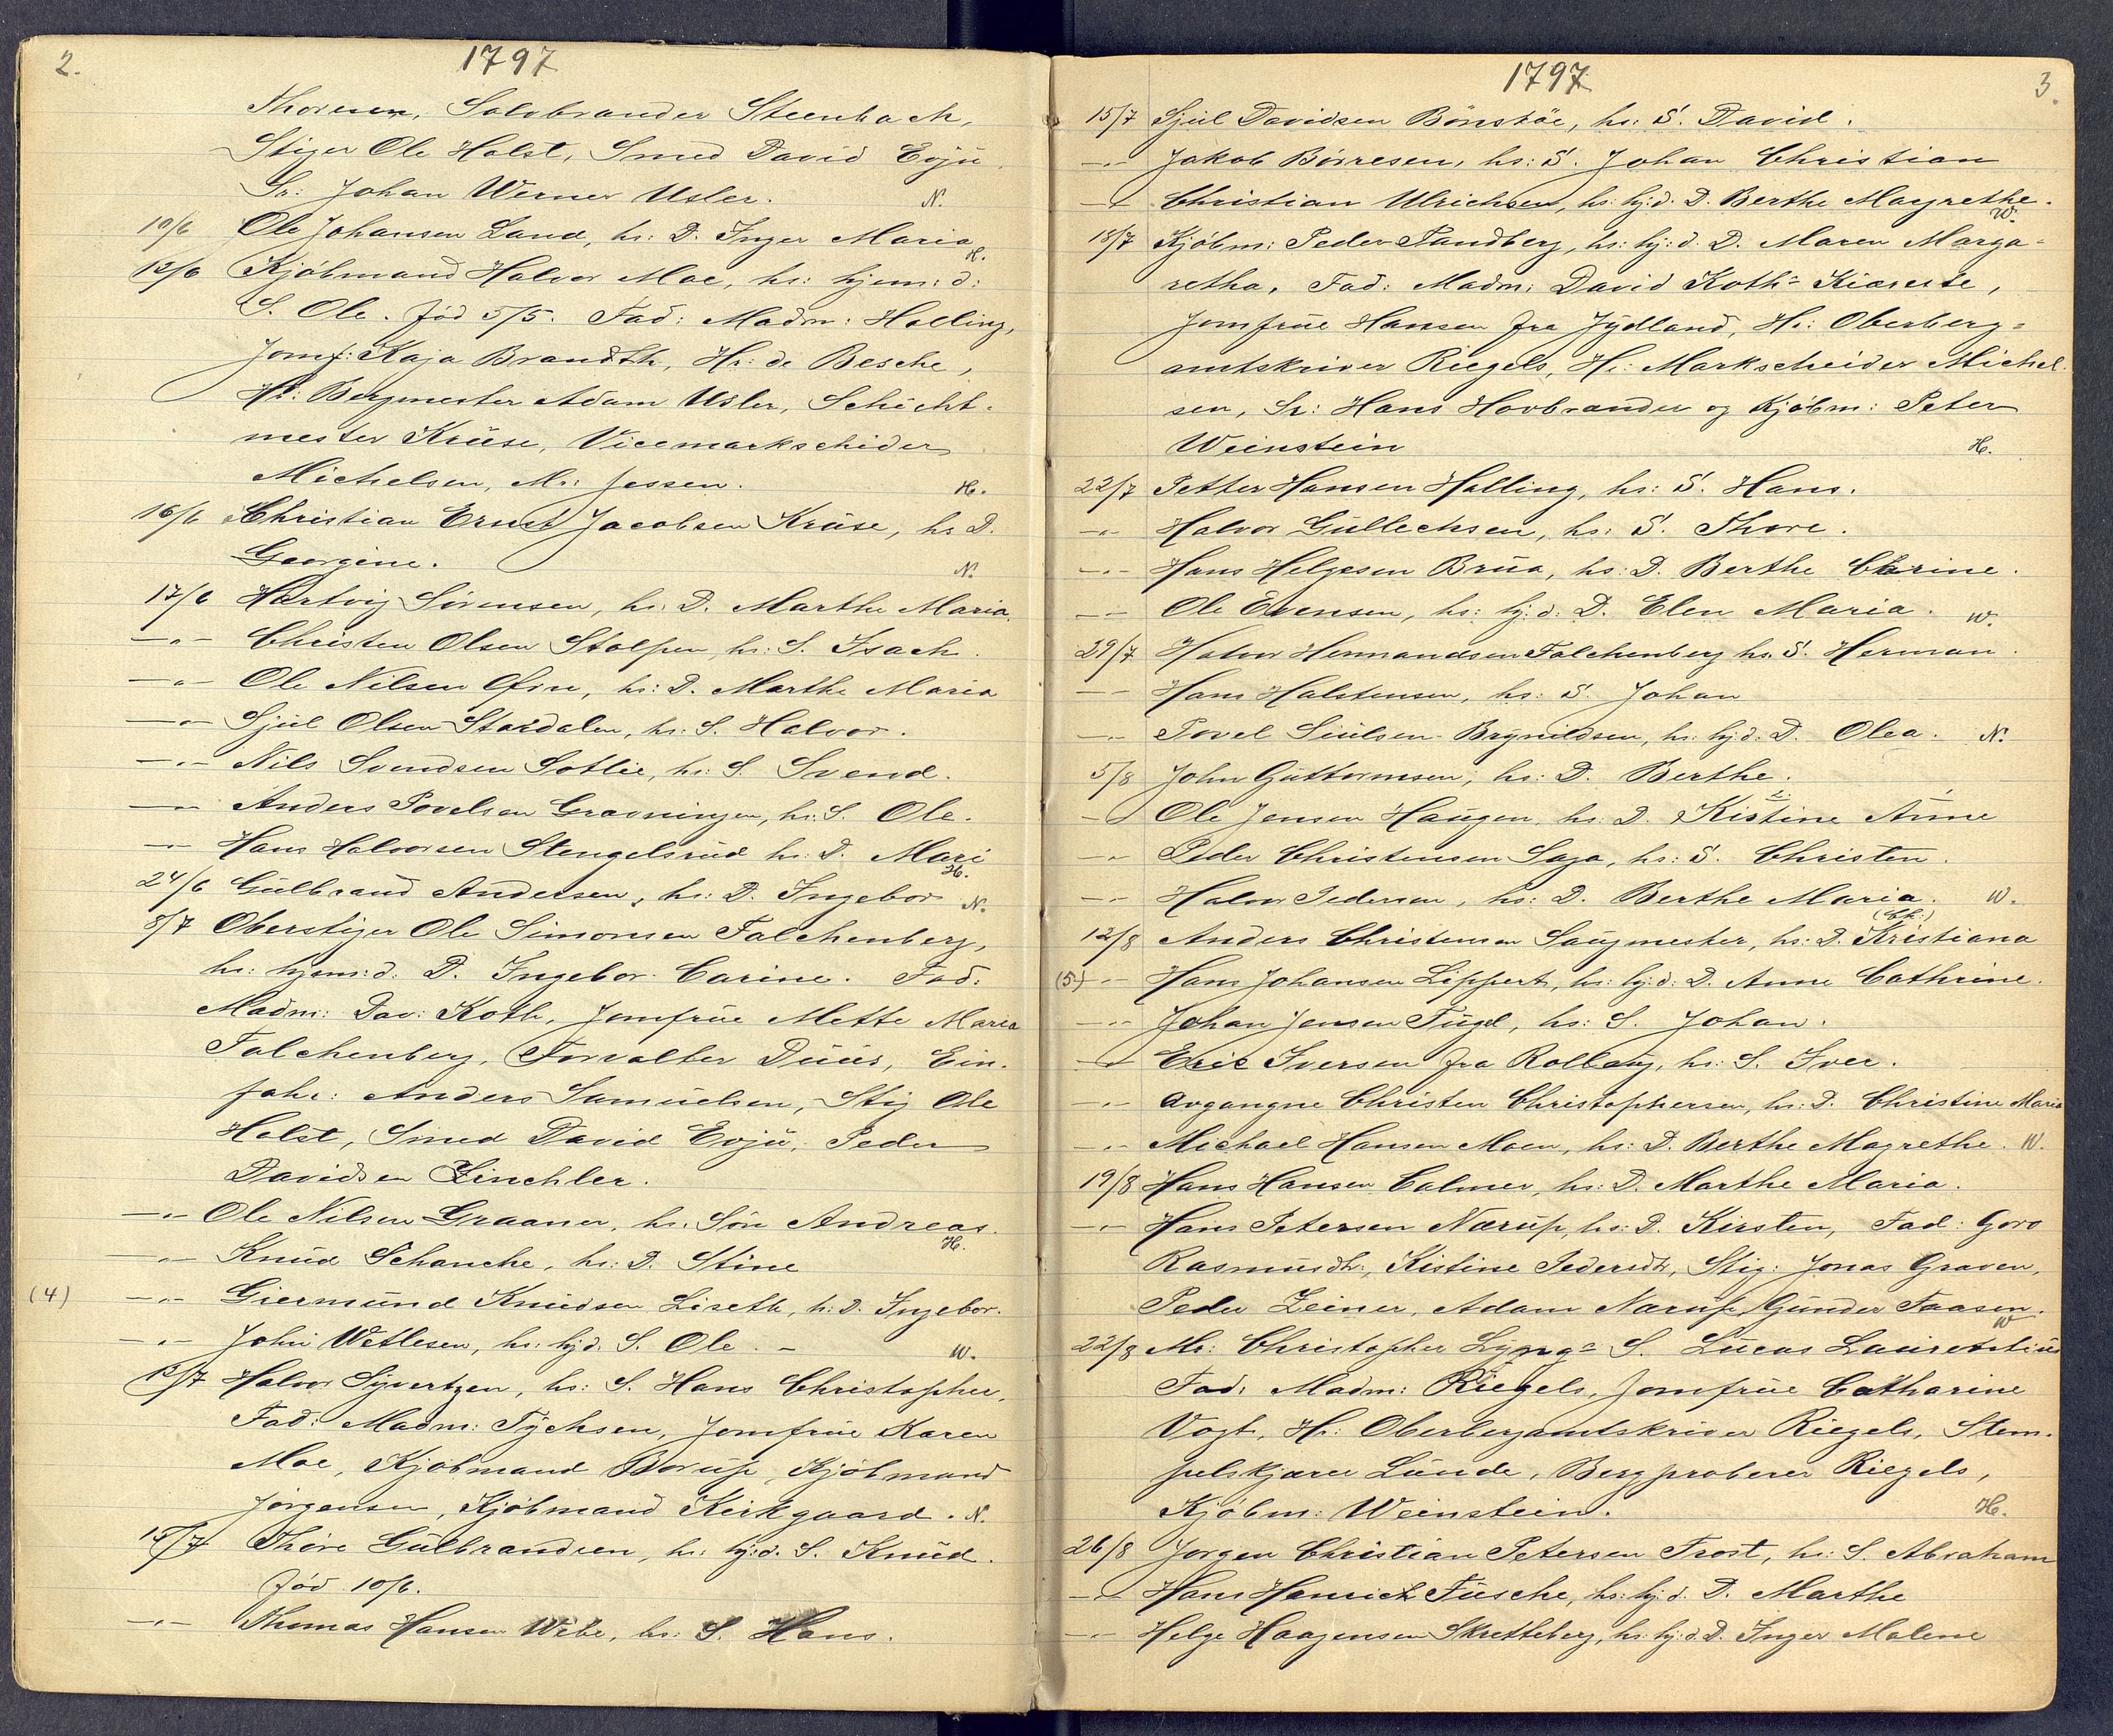 2.
1797
Thoresen, Solvbrander Steenbach,
Stiger Ole Holst, Smed David Evju.
Sr: Johan Werner Usler. N.
10/6 Ole Johansen Land, hs: D. Inger Maria H.
12/6 Kjöbmand Halvor Moe, hs: hjem: d:
S. Ole. fød 5/5. Fad: Madm: Holling,
Jomf: Kaja Brandth, Hr: de Besche,
Hr: Bergmester Adam Usler, Schicht-
mester Krüse, Vicemarkscheider
Michelsen, Mr: Jessen. H.
16/6 Christian Ernst Jacobsen Krüse, hs D.
Georgine. N.
17/6 Hartvig Sörensen, hs: D. Marthe Maria.
—„— Christen Olsen Stolpen, hs: S. Isach.
—„— Ole Nilsen Ofin, hs: D. Marthe Maria
—„— Sjul Olsen Stordalen, hs: S. Halvor.
—„— Nils Svendsen Sotlie, hs: S. Svend.
—„— Anders Povelsen Gravningen, hs: S. Ole.
—„— Hans Halvorsen Stengelsrud hs: D. Mari H.
24/6 Gülbrand Andersen, hs: D. Ingebor N.
8/7 Oberstiger Ole Simonsen Falchenberg,
hs: hjem: d: D. Ingebor Carine. Fad:
Madm: Dav: Koth, Jomfrue Mette Maria
Falchenberg, Forvalter Duus, Ein-
fahr: Anders Samuelsen, Stig Ole
Holst, Smed David Evju, Peder
Davidsen Zinchler.
—„— Ole Nilsen Graaner, hs: Sön Andreas. H.
—„— Knud Schanche, hs: D. Stine
(4) —„— Giermund Knudsen Liseth, h: D. Ingebor.
—„— John Wetlesen, hs: hj:d. S. Ole. - W.
12/7 Halvor Syvertzen, hs: S. Hans Christopher,
Fad: Madm: Tychsen, Jomfrue Karen
Moe, Kjöbmand Borup, Kjöbmand
Jörgensen, Kjöbmand Kirkgaard. N.
15/7 Thore Gulbrandsen, hs: hj:d. S. Knud.
fød 10/6.
—„— Thomas Hansen Wibe, hs: S. Hans.
1797
3.
15/7 Sjul Davidsen Bönsköe, hs: S. David.
—„— Jakob Börresen, hs: S. Johan Christian
—„— Christian Ulrichsen, hs: hj:d. D. Berthe Magrethe. W.
18/7 Kjöbm: Peder Sandberg, hs: hj: d. D. Maren Marga-
retha, Fad: Madm: David Koth= Kiæreste,
Jomfrue Hansen fra Jydland, Hr: Oberberg=
amtskriver Riegels, Hr: Markscheider Michel-
sen, Sr: Hans Hovbrander og Kjöbm: Peter
Weinstein H.
22/7 Petter Hansen Holling, hs: S. Hans.
—„— Halvor Gullechsen, hs: S. Thore.
—„— Hans Helgesen Brua, hs: D. Berthe Carine.
—„— Ole Evensen, hs: hj: d: D. Elen Maria. W.
29/7 Halvor Hermandsen Falchenberg hs. S. Herman.
—„— Hans Halstensen, hs: S. Johan
—„— Povel Siulsen Brynildsen, hs: hj:d: D. Olea. N.
5/8 John Guttormsen, hs: D. Berthe.
—„— Ole Jensen Haugen, hs: D. Kistine Anne
—„— Peder Christensen Saga, hs: S. Christen.
—„— Halvor Pedersen, hs: D. Berthe Maria. W.
12/8 Anders Christensen Saugmester, hs: D. Kristiana (Ch:)
(5) —„— Hans Johansen Lippert, hs: hj: d: D. Anne Cathrine.
—„— Johan Jensen Fugel, hs: S. Johan.
—„— Eric Iversen fra Rollaug, hs: S. Iver.
—„— Avgangne Christen Christophersen, hs: D. Christine Maria
—„— Michael Hansen Moen, hs: D. Berthe Magrethe. W.
19/8 Hans Hansen Calmer, hs: D. Marthe Maria.
—„— Hans Petersen Nærup, hs: D. Kirsten, Fad: Goro
Rasmusdtr., Kistine Pedersdtr, Stig: Jonas Graven,
Peder Zeiner, Adam Nærup, Gunder Faasen. W
22/8 Mr: Christopher Lyng= S. Lucas Laurentius
Fad: Madm: Riegels, Jomfrue Catharine
Vogt, Hr: Oberbergamtskriver Riegels, Stem-
pelskjærer Lunde, Bergproberer Riegels,
Kjöbm: Weinstein. H.
26/8 Jorgen Christian Petersen Frost, hs: S. Abraham
—„— Hans Henrich Fusche, hs: hj: d. D. Marthe
—„— Helge Haagensen Skretteberg, hs: hj: d. D. Inger Malene